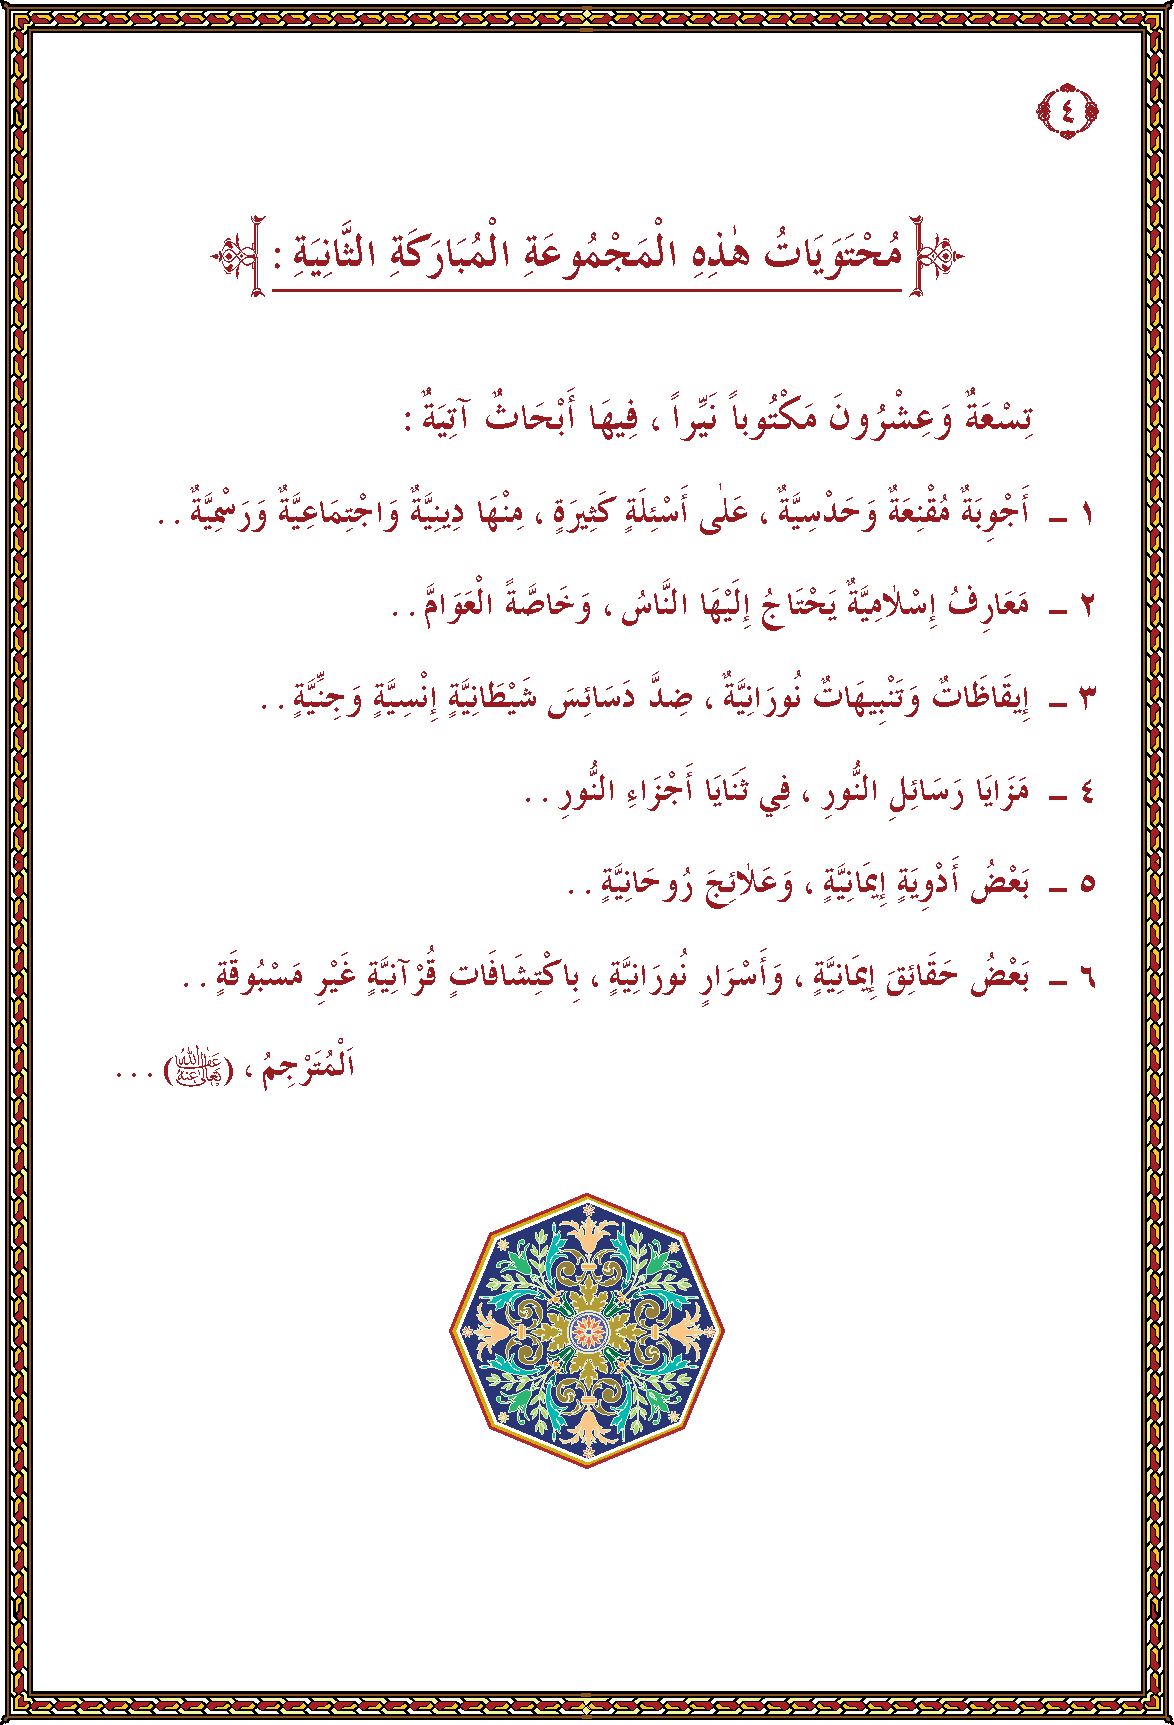 ٤
مُحْتَوَيَاتُ هٰذِهِ الْمَجْمُوعَةِ الْمُبَارَكَةِ الثَّانِيَةِ :
تِسْعَةٌ وَعِشْرُونَ مَكْتُوباً نَيِّراً ، فِيهَا أَبْحَاثٌ آتِيَةٌ :
١ ـ أَجْوِبَةٌ مُقْنِعَةٌ وَحَدْسِيَّةٌ ، عَلٰى أَسْئِلَةٍ كَثِيرَةٍ ، مِنْهَا دِينِيَّةٌ وَاجْتِمَاعِيَّةٌ وَرَسْمِيَّةٌ . .
٢ ـ مَعَارِفُ إِسْلاٰمِيَّةٌ يَحْتَاجُ إِلَيْهَا النَّاسُ ، وَخَاصَّةً الْعَوَامَّ . .
٣ ـ إِيقَاظَاتٌ وَتَنْبِيهَاتٌ نُورَانِيَّةٌ ، ضِدَّ دَسَائِسَ شَيْطَانِيَّةٍ إِنْسِيَّةٍ وَجِنِّيَّةٍ . .
٤ ـ مَزَايَا رَسَائِلِ النُّورِ ، فِي ثَنَايَا أَجْزَاءِ النُّورِ . .
٥ ـ بَعْضُ أَدْوِيَةٍ إِيمَانِيَّةٍ ، وَعَلاٰئِجَ رُوحَانِيَّةٍ . .
٦ ـ بَعْضُ حَقَائِقَ إِيمَانِيَّةٍ ، وَأَسْرَارٍ نُورَانِيَّةٍ ، بِاكْتِشَافَاتٍ قُرْآنِيَّةٍ غَيْرِ مَسْبُوقَةٍ . .
اَلْمُتَرْجِمُ ، (عَفَا اللّٰهُ تَعَالٰى عَنْهُ) . . .